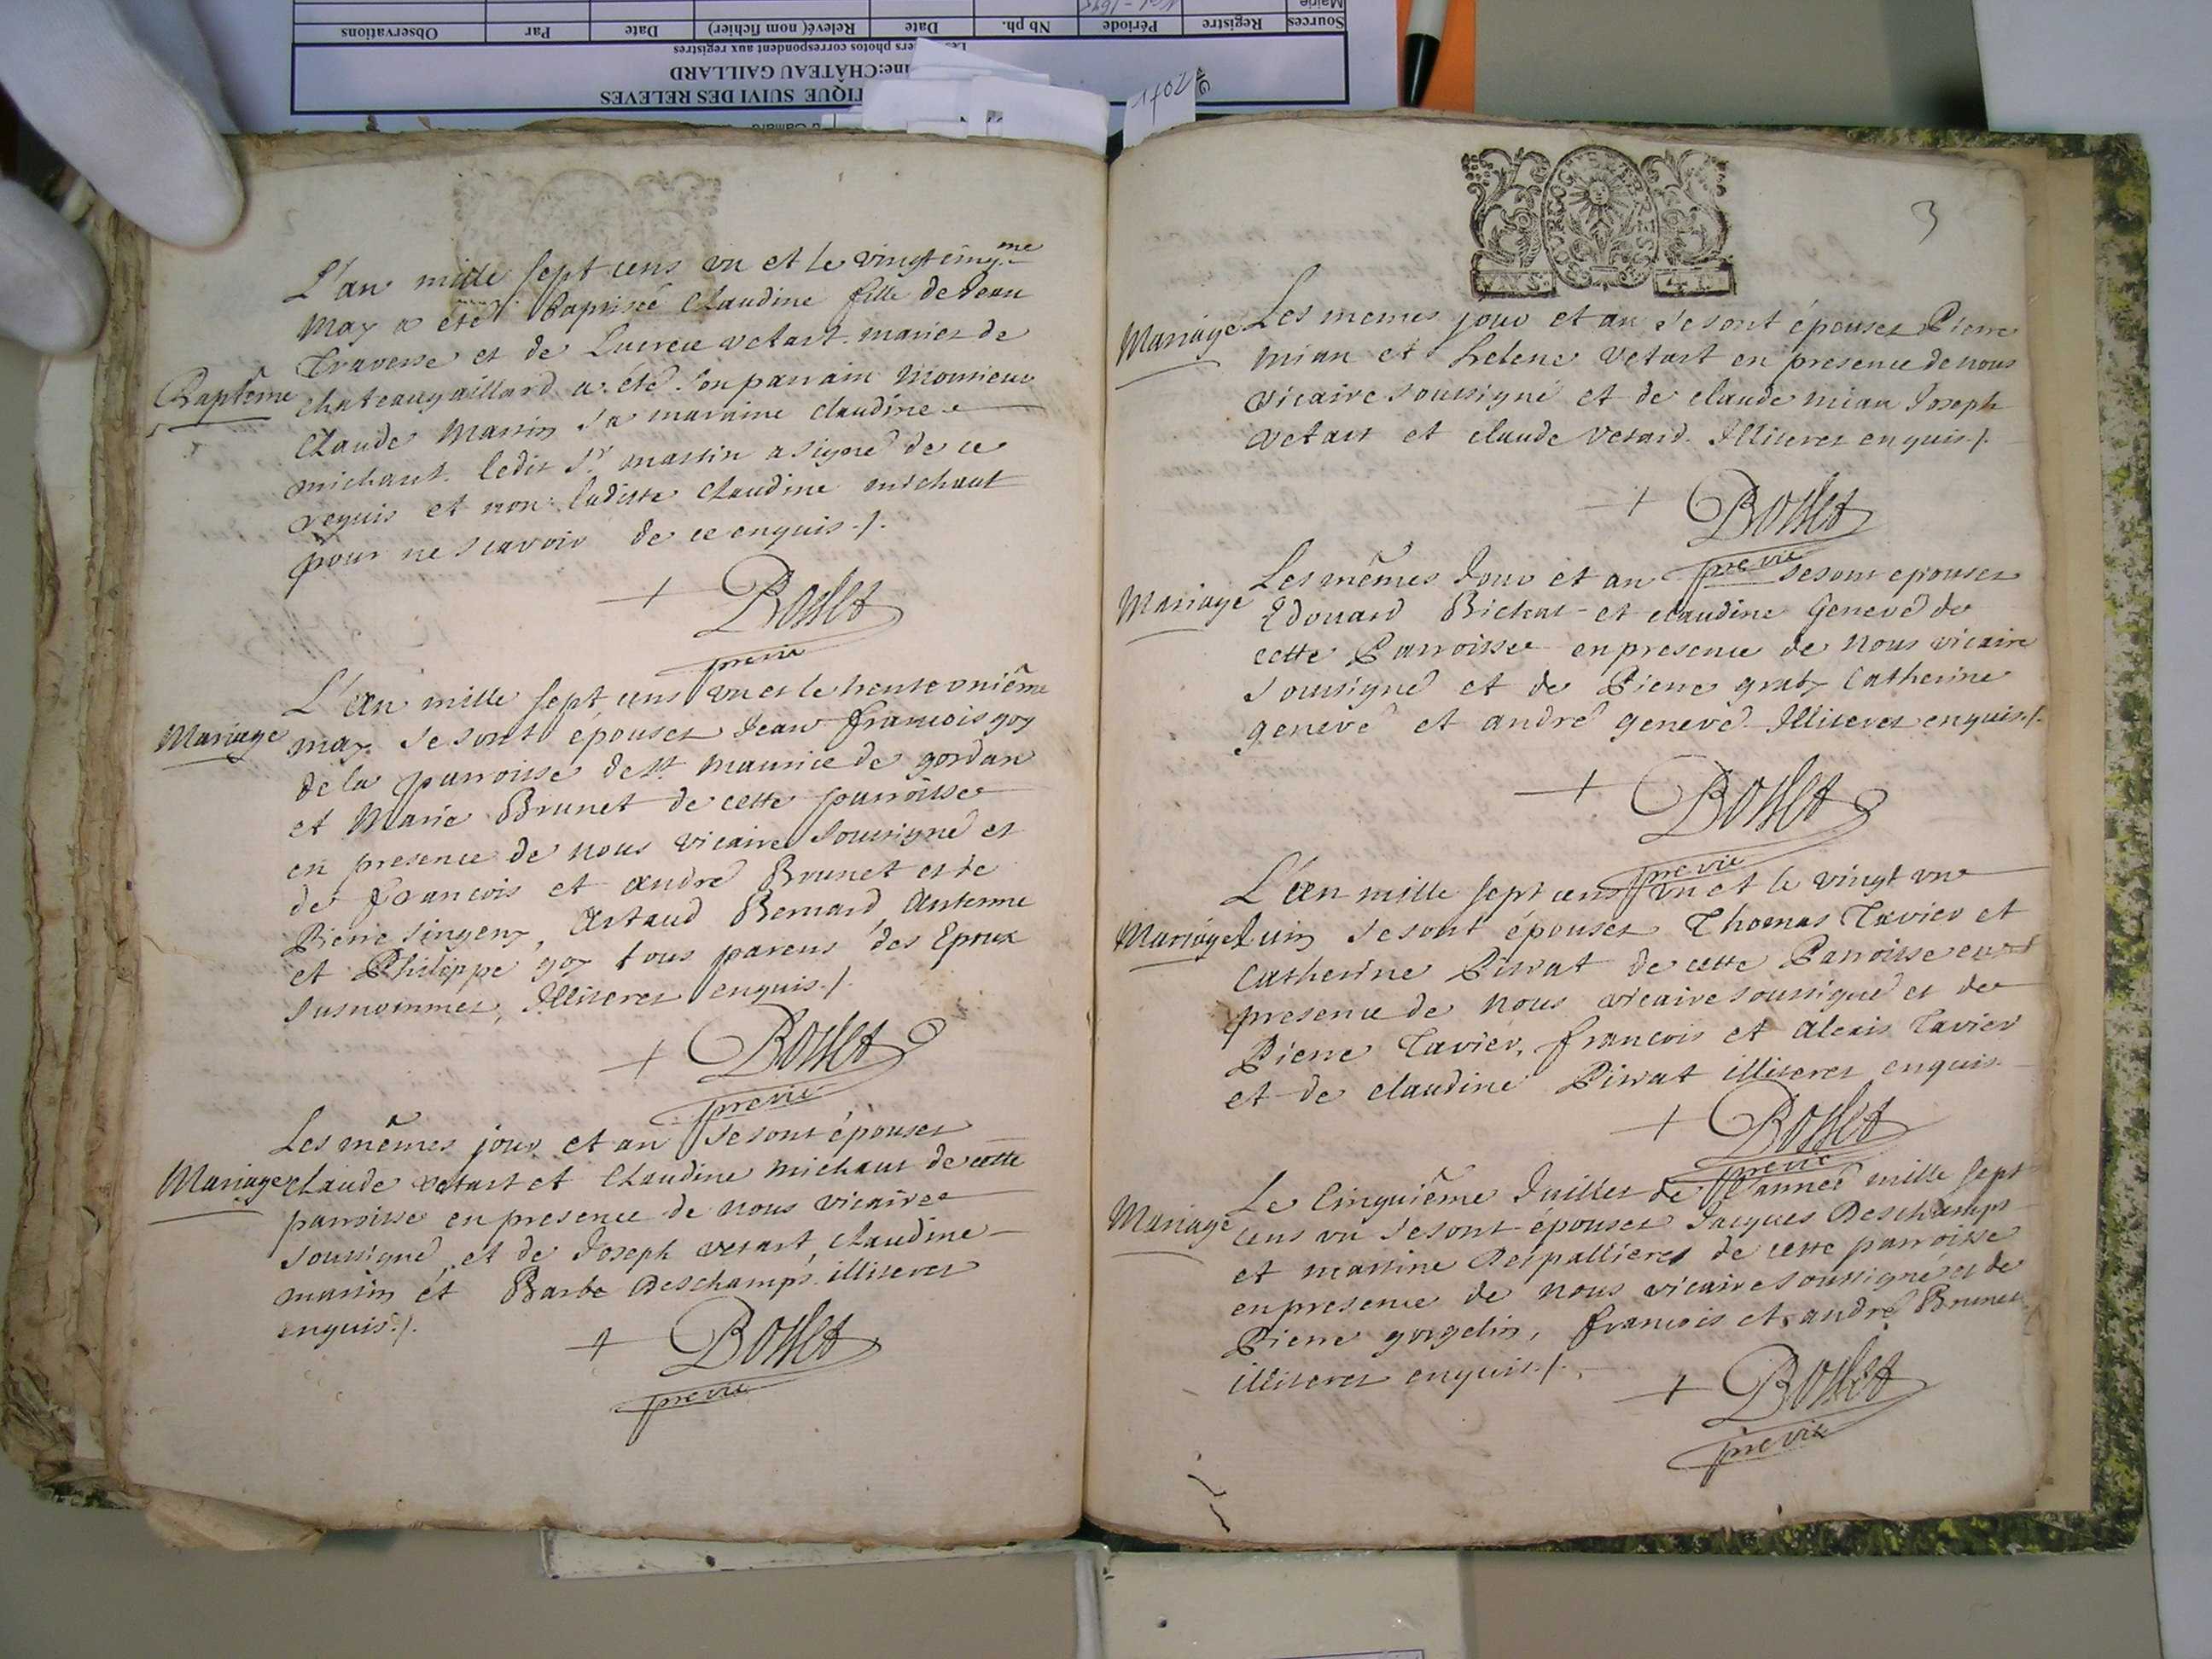 Sources Registre Période Nb ph. Date Relevé( nom fichier) Date Par Observations
Mairie
TIQUE SUIVI DES RELEVES
CHÂTEAU GAILLARD
photos correspondent aux registres
1702
L'an mille sept cens un et le vingtcinq.me
May a été Baptisée Claudine fille de Jean
Traverse et de Lucrece vetart mariez de
Baptême
chateaugaillard a été son parrain Monsieur
Claude Martin sa maraine claudine
michaut. ledit Sr martin a signé de ce
requis et non laditte Claudine michaut
pour ne scavoir de ce enquis ./.
+ Bosset
previe
L'an mille sept cens un et le trenteuniême
Mariage
may se sont épousez Jean françois goy
de la parroisse de st maurice de gordan
et Marie Brunet de cette parroisse
en presence de nous vicaire soussigné et
de françois et andré Brunet et de
Pierre Singeny, Artaud Bernard, Antenne
et Philippe goy tous parens des Epoux
susnommez, Illiterez enquis ./.
+ Bosset
previe
Les mêmes jour et an se sont épousez
Mariage
claude vetart et Claudine michaut de cette
parroisse en presence de nous vicaire
soussigné et de Joseph vetart, Claudine
martin et Barbe Deschamps illiterez
enquis ./.
+ Bosset
previe
3
Mariage
Les memes jour et an se sont épousez Pierre
mian et helene Vetart en presence de nous
vicaire soussigné et de claude mian Joseph
vetart et claude vetard. Illiterez enquis ./.
+ Bosset
previe
Mariage
Les mêmes Jour et an se sont epousez
Edouard Bichat et claudine Genevé de
cette Parroisse en presence de Nous vicaire
soussigné et de Pierre graty Catherine
genevé et andré genevé. Illiterez enquis ./.
+ Bosset
previe
L'an mille sept cens un et le vingt un
Mariage
Juin se sont épousez Thomas Tavier et
Catherine Pivrat de cette Parroisse en
presence de Nous vicaire soussigné et de
Pierre Tavier, françois et alexis Tavier
et de claudine Pivrat illiterez enquis.
+ Bosset
previe
Mariage
Le Cinquiême Juillet de l'année mille sept
cens un se sont épousez Jacques Deschamps
et martine Despallieres de cette parroisse
en presence de nous vicaire soussigné et de
Pierre gorgelin, françois et andré Brunet
illiterez enquis ./.
+ Bosset
previe